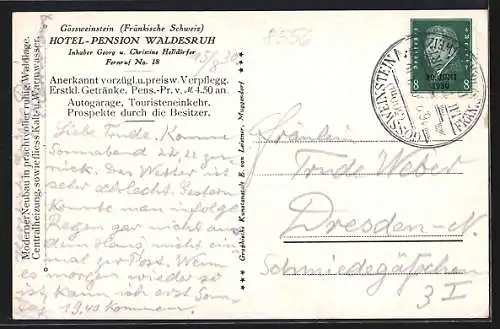 Gössweinstein (Fränkische Schweiz)
HOTEL-PENSION WALDESRUH
Inhaber Georg u. Christine Helldörfer
Fernruf No. 18
Anerkannt vorzügl. u. preisw. Verpflegg.
Erstkl. Getränke, Pens.-Pr. v. M. 4.50 an.
Autogarage, Touristeneinkehr.
Prospekte durch die Besitzer.
Moderner Neubau in prachtvoller ruhig. Waldlage.
Centralheizung, sowie fliess. Kalt u. Warmwasser.
8556
Liebe Trude. Komme
Sonnabend 22,22 zu-
rück. Das Wetter ist
sehr schlecht. Gestern
konnte man infolge
Regen gar nicht aus
dem Haus, nicht ein
mal zur Post. Wenn
es morgen wieder so
ist, kann ich erst Sonn
19.40 kommen.
Graphische Kunstanstalt E. von Leistner, Muggendorf
GÖSSWEINSTEIN
30. JUNI
1930
8 8
Fräulein
Trude Weber
Dresden-N.
Schmiedegäßchen
3 I